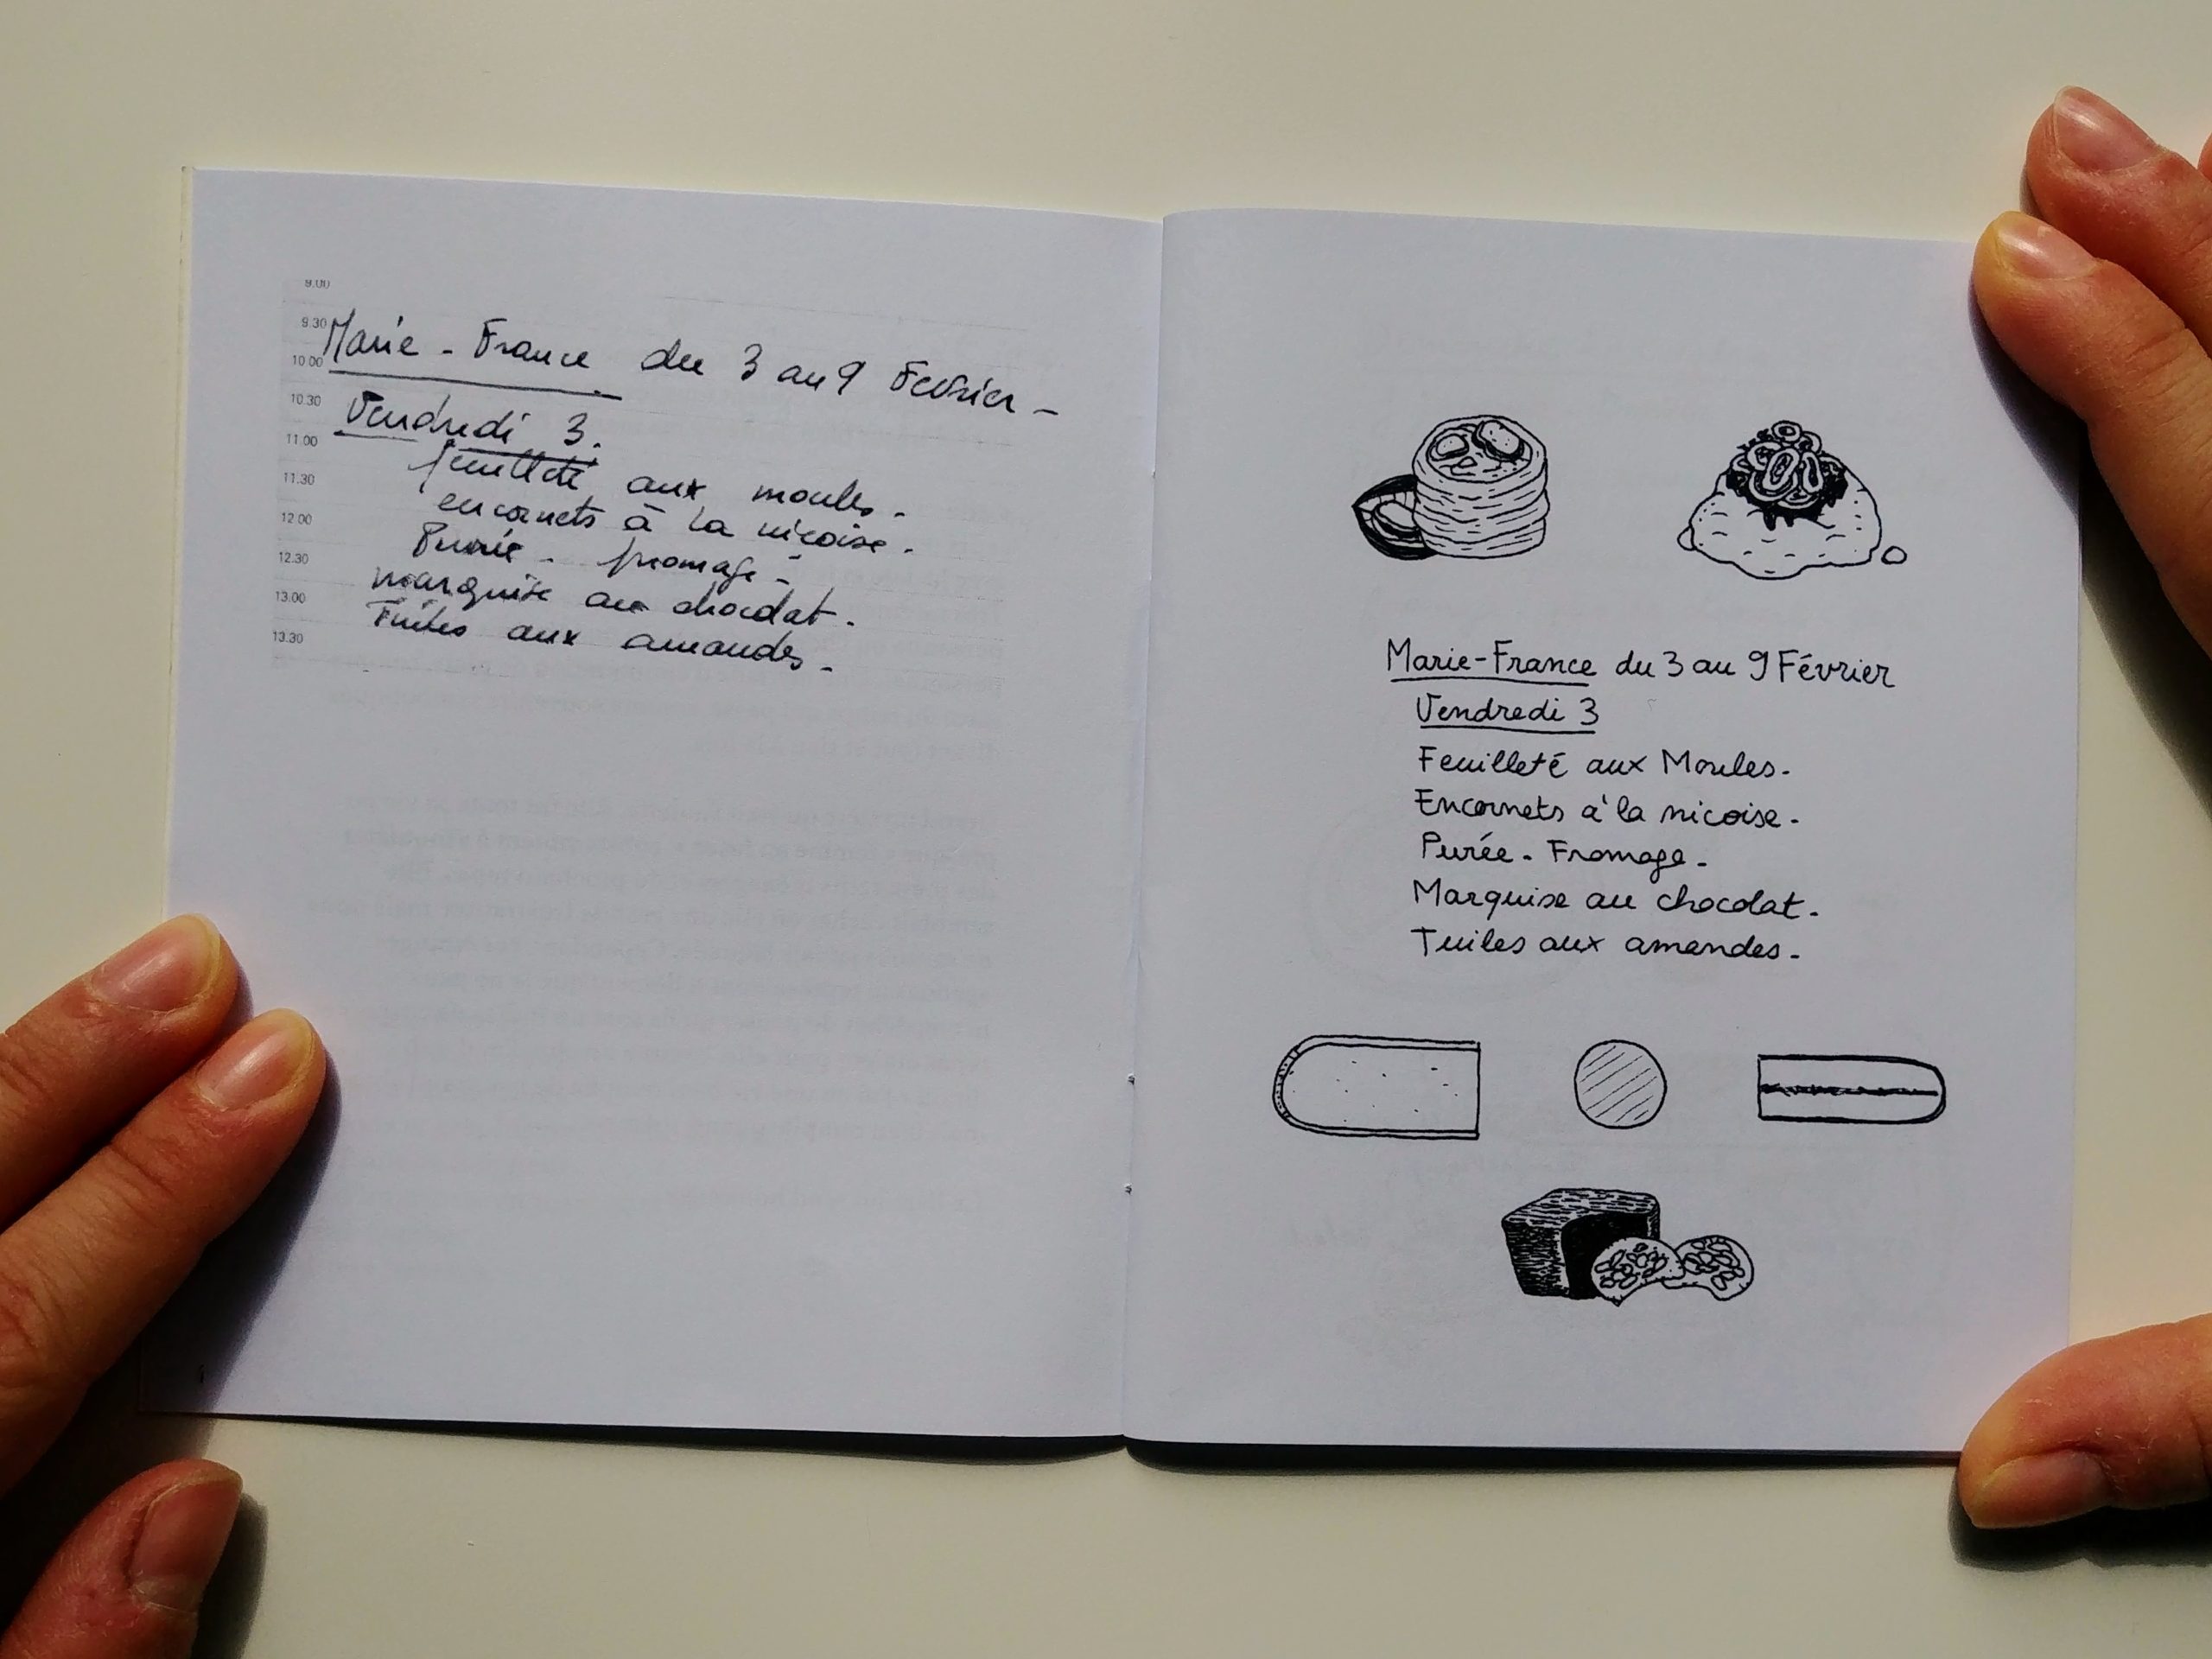 9.00
9.30
Marie - France du 3 au 9 Fevrier -
10.00
10.30
Vendredi 3.
11.00
feuilleté aux moules.
11.30
encornets à la nicoise.
12.00
Purée - fromage -
12.30
marquise au chocolat.
13.00
Tuiles aux amandes.
13.30
Marie-France du 3 au 9 Février
Vendredi 3
Feuilleté aux Moules.
Encornets à la nicoise.
Purée. Fromage.
Marquise au chocolat.
Tuiles aux amandes.